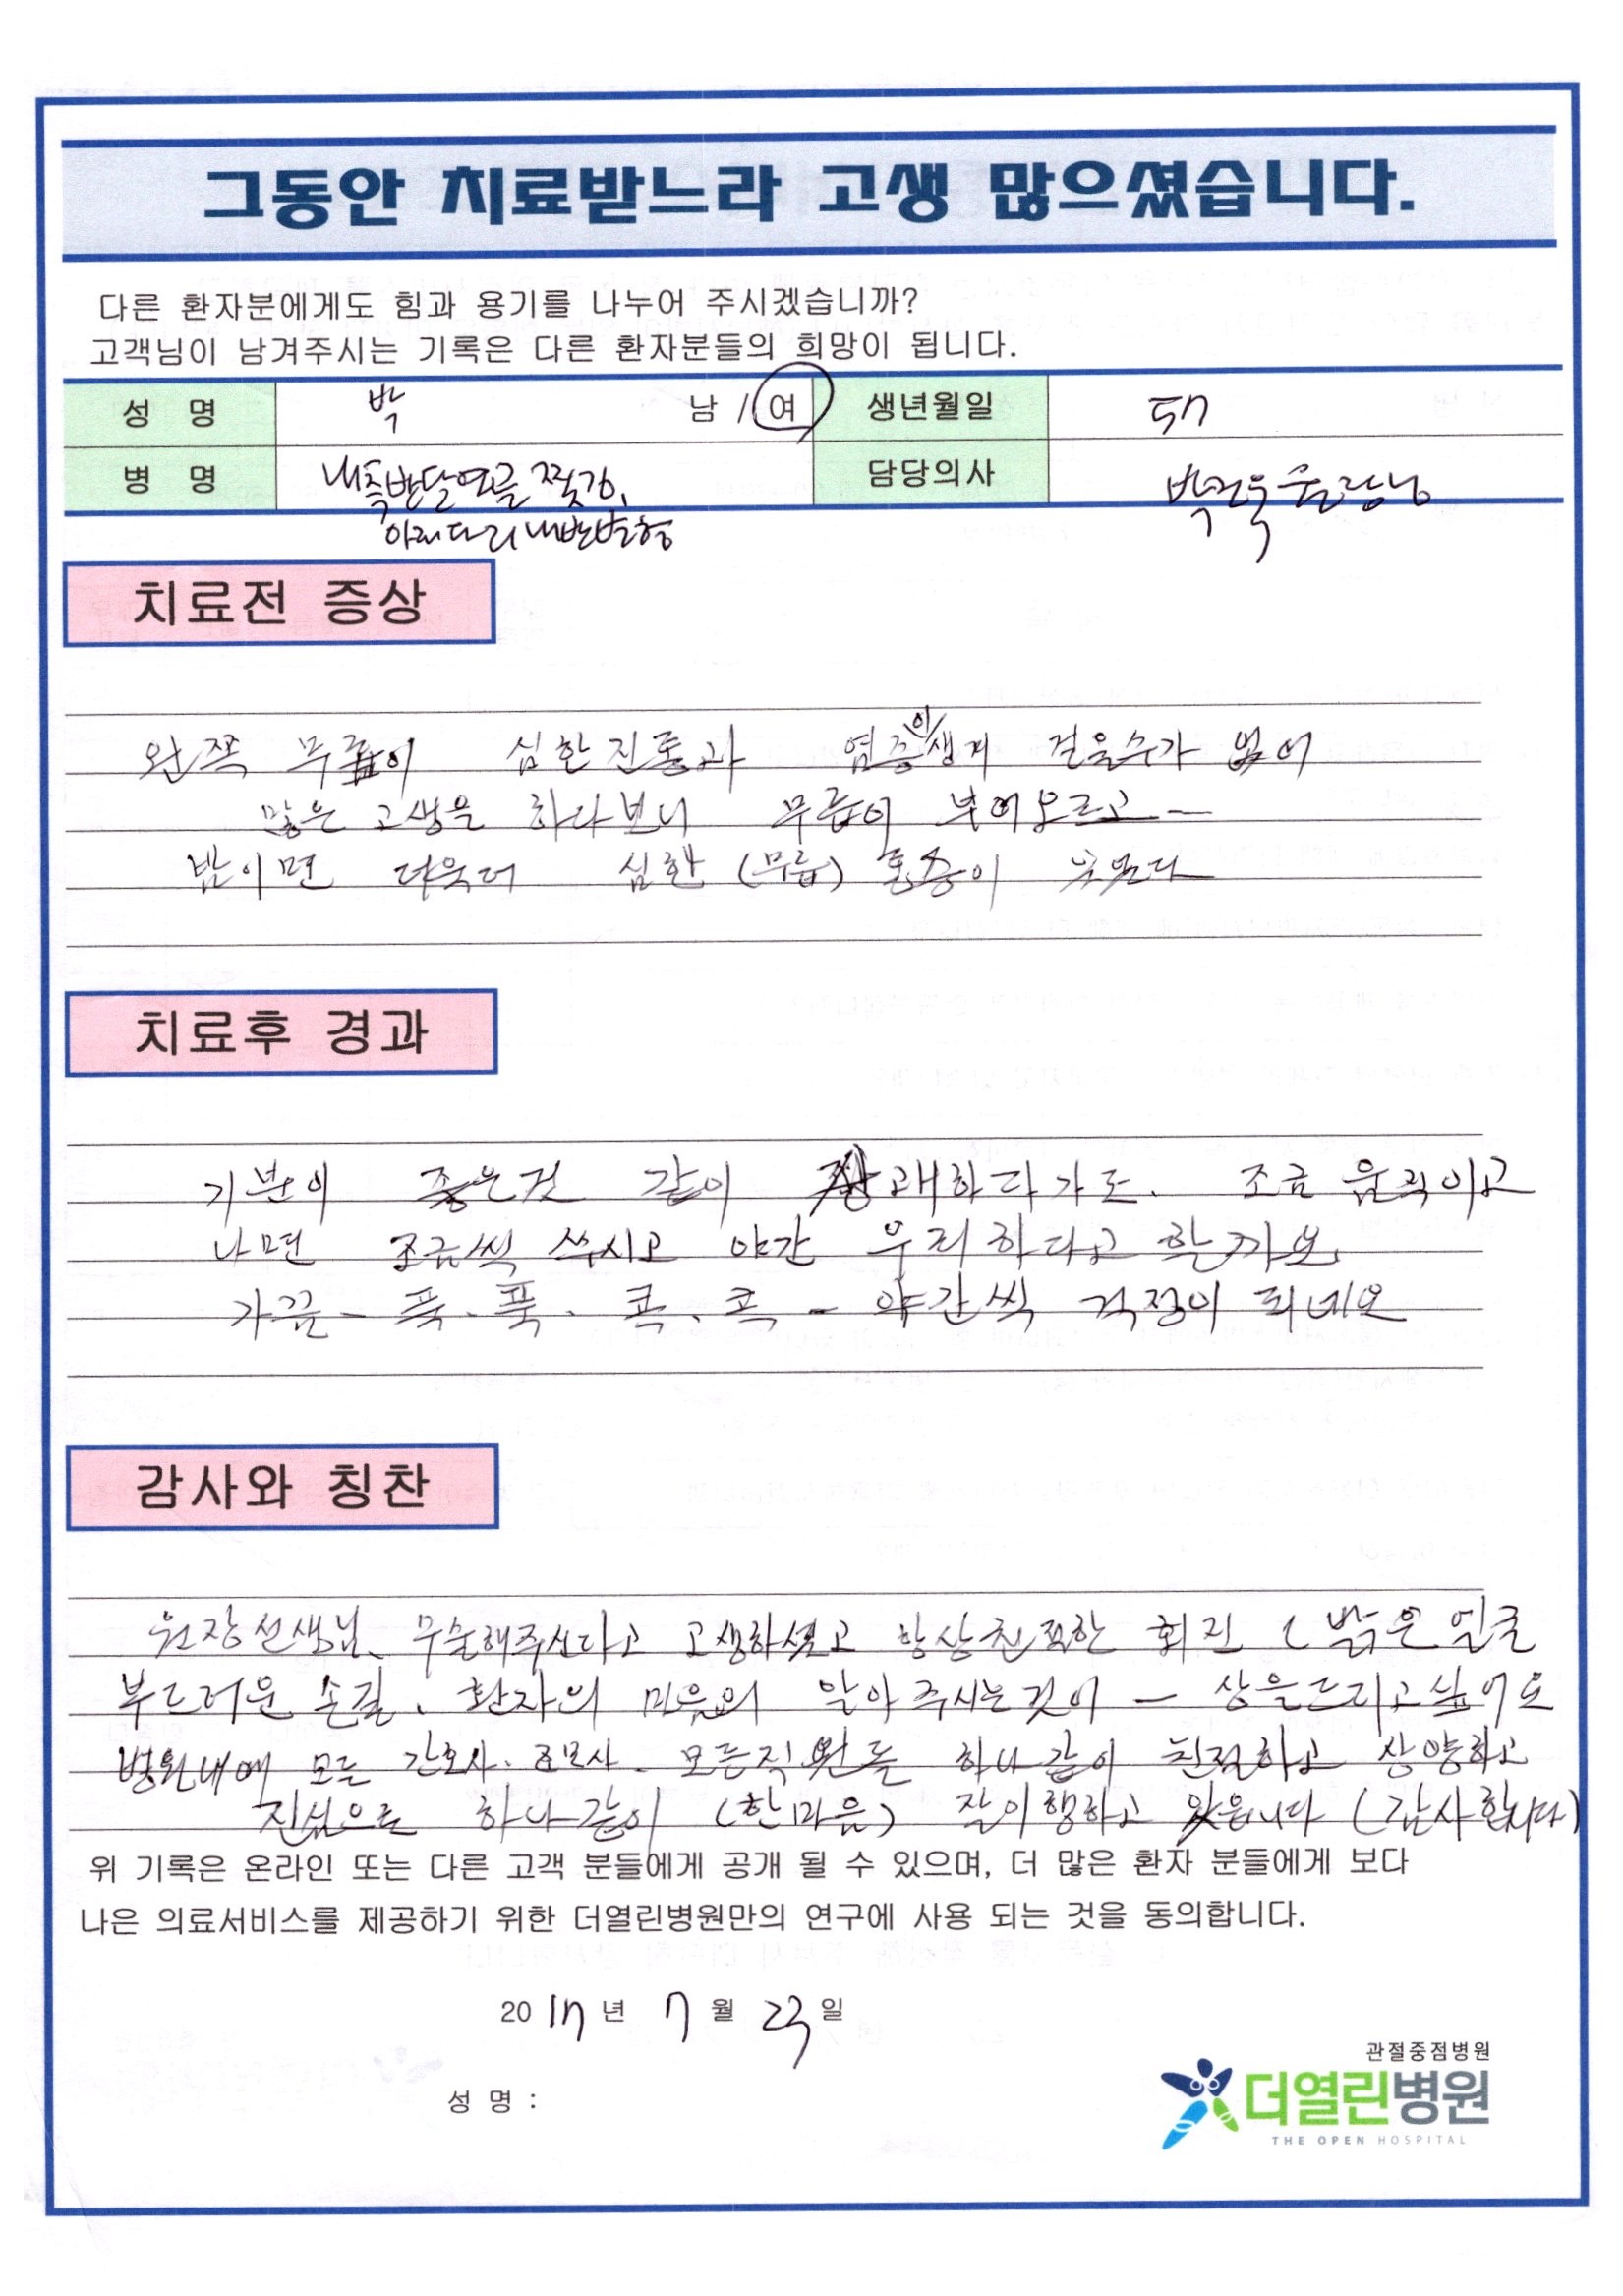 그동안 치료받느라 고생 많으셨습니다.
다른 환자분에게도 힘과 용기를 나누어 주시겠습니까?
고객님이 남겨주시는 기록은 다른 환자분들의 희망이 됩니다.
성 명 박 남 / 여 생년월일 57
병 명 내측반달연골 찢김, 담당의사 박건욱 원장님
아래다리 내반변형
치료전 증상
왼쪽 무릎이 심한진통과 염증이 생겨 걸을수가 없어
많은 고생을 하다보니 무릎이 부어오르고 ㅡ
밤이면 더욱더 심한 (무릎) 통증이
치료후 경과
기분이 좋은것 같이 쾌하다가도. 조금 움직이고
나면 조금씩 쑤시고 약간 우리하다고 할까요
가끔 - 푹. 푹. 콕. 콕 - 약간씩 걱정이 되네요
감사와 칭찬
원장선생님. 수술해주신다고 고생하셨고 항상친절한 회진 ( 밝은 얼굴
부드러운 손길. 환자의 마음의 알아주시는것이 ㅡ 상을드리고싶어요
병원내에 모든 간호사. 조모사. 모든직원들 하나같이 친절하고 상양하고
진심으로 하나같이 (한마음) 잘이행하고 있읍니다 (감사합니다)
위 기록은 온라인 또는 다른 고객 분들에게 공개 될 수 있으며, 더 많은 환자 분들에게 보다
나은 의료서비스를 제공하기 위한 더열린병원만의 연구에 사용 되는 것을 동의합니다.
2017년 7월 23일
성 명 :
관절중점병원
더열린병원
THE OPEN HOSPITAL